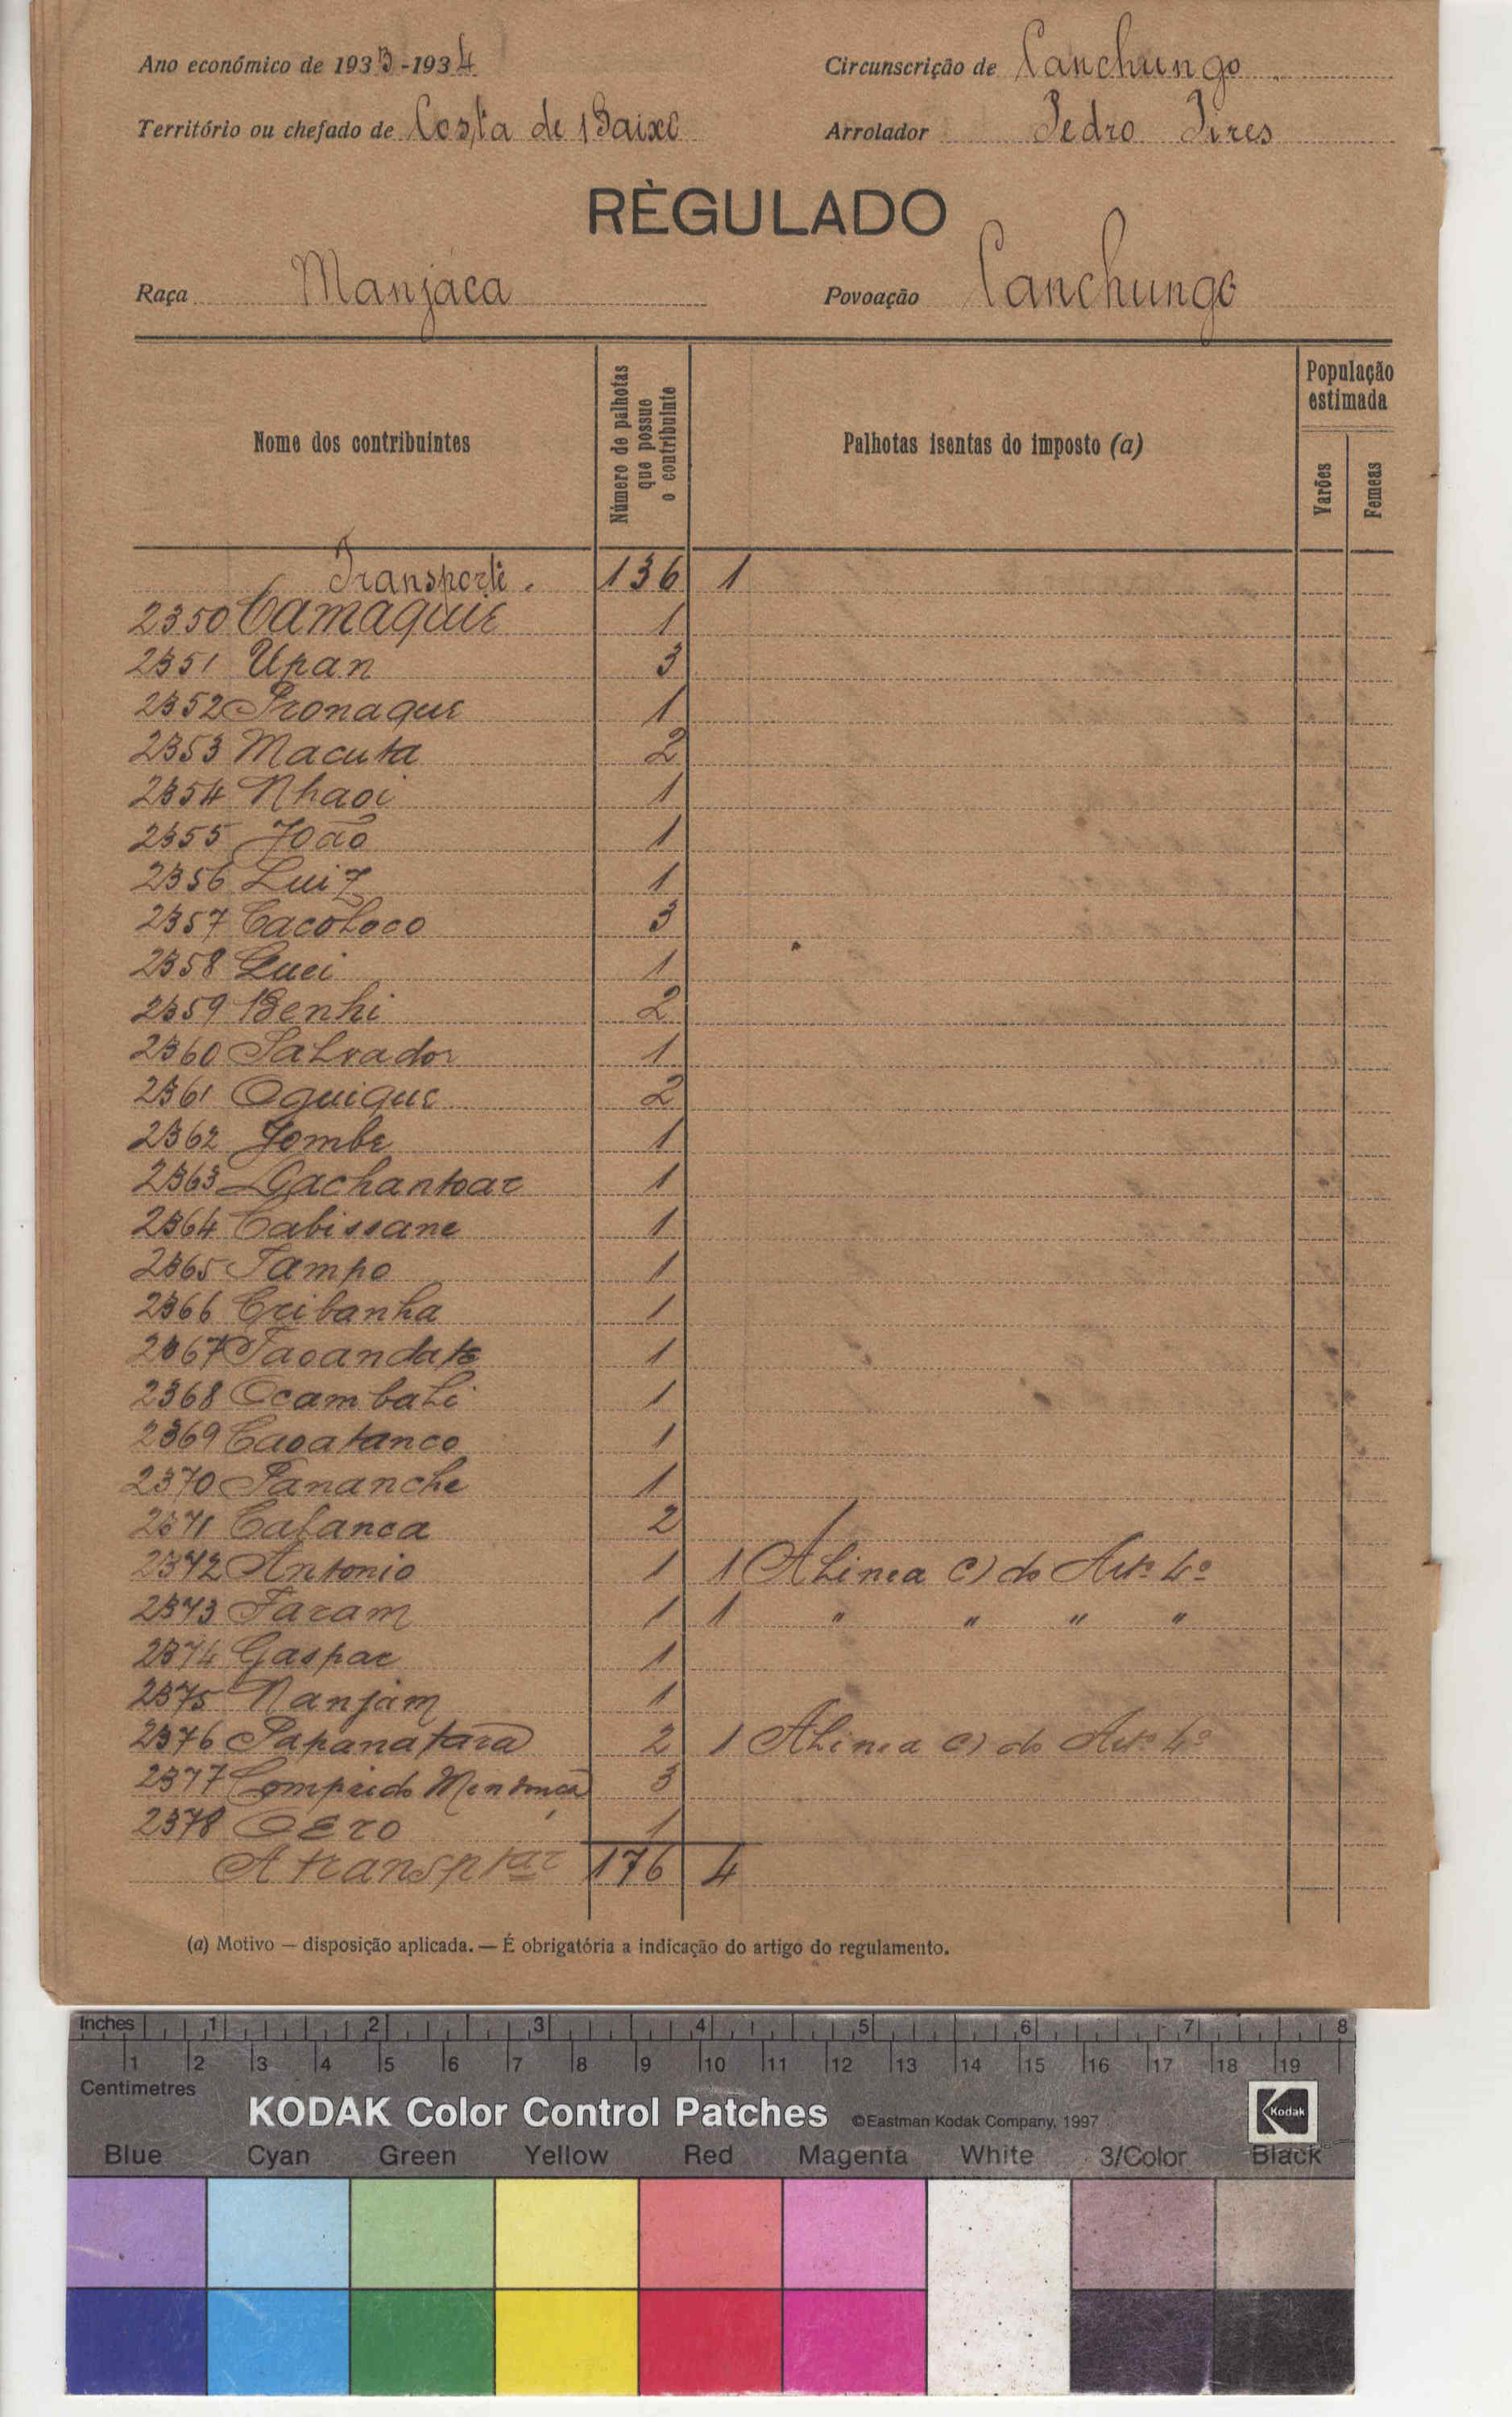 Ano económico de 1933-1934 Circunscrição de Canchungo
Território ou chefado de Costa de Baixo Arrolador Pedro Pires
RÈGULADO
Raça Manjaca Povoação Canchungo
Nome dos contribuintes
Número de palhotas que possue o contribuinte
Palhotas isentas do imposto (a)
População estimada
Varões
Femeas
Transporte. 136 1
2350 Camaquie 1
2351 Upan 3
2352 Pronaque 1
2353 Macuta 2
2354 Nhaoi 1
2355 João 1
2356 Luiz 1
2357 Cacoloco 3
2358 1
2359 Benhi 2
2360 Salvador 1
2361 Oquique 2
2362 Jombe 1
2363 1
2364 Cabissane 1
2365 Tampo 1
2366 Cribanha 1
2367 1
2368 Ocambali 1
2369 Caoatanco 1
2370 Fananche 1
2371 Cafanca 2
2372 Antonio 1 1 Alinea c) do Artº 4º
2373 Faram 1 1 " " " "
2374 Gaspar 1
2375 Nanjam 1
2376 Papanatara 2 1 Alinea c) do Artº 4º
2377 Comprido Mendonça 3
2378 Oero 1
A transptar 176 4
(a) Motivo — disposição aplicada. — É obrigatória a indicação do artigo do regulamento.
Inches 1 2 3 4 5 6 7 8
1 2 3 4 5 6 7 8 9 10 11 12 13 14 15 16 17 18 19
Centimetres
KODAK Color Control Patches ©Eastman Kodak Company, 1997 Kodak
Blue Cyan Green Yellow Red Magenta White 3/Color Black